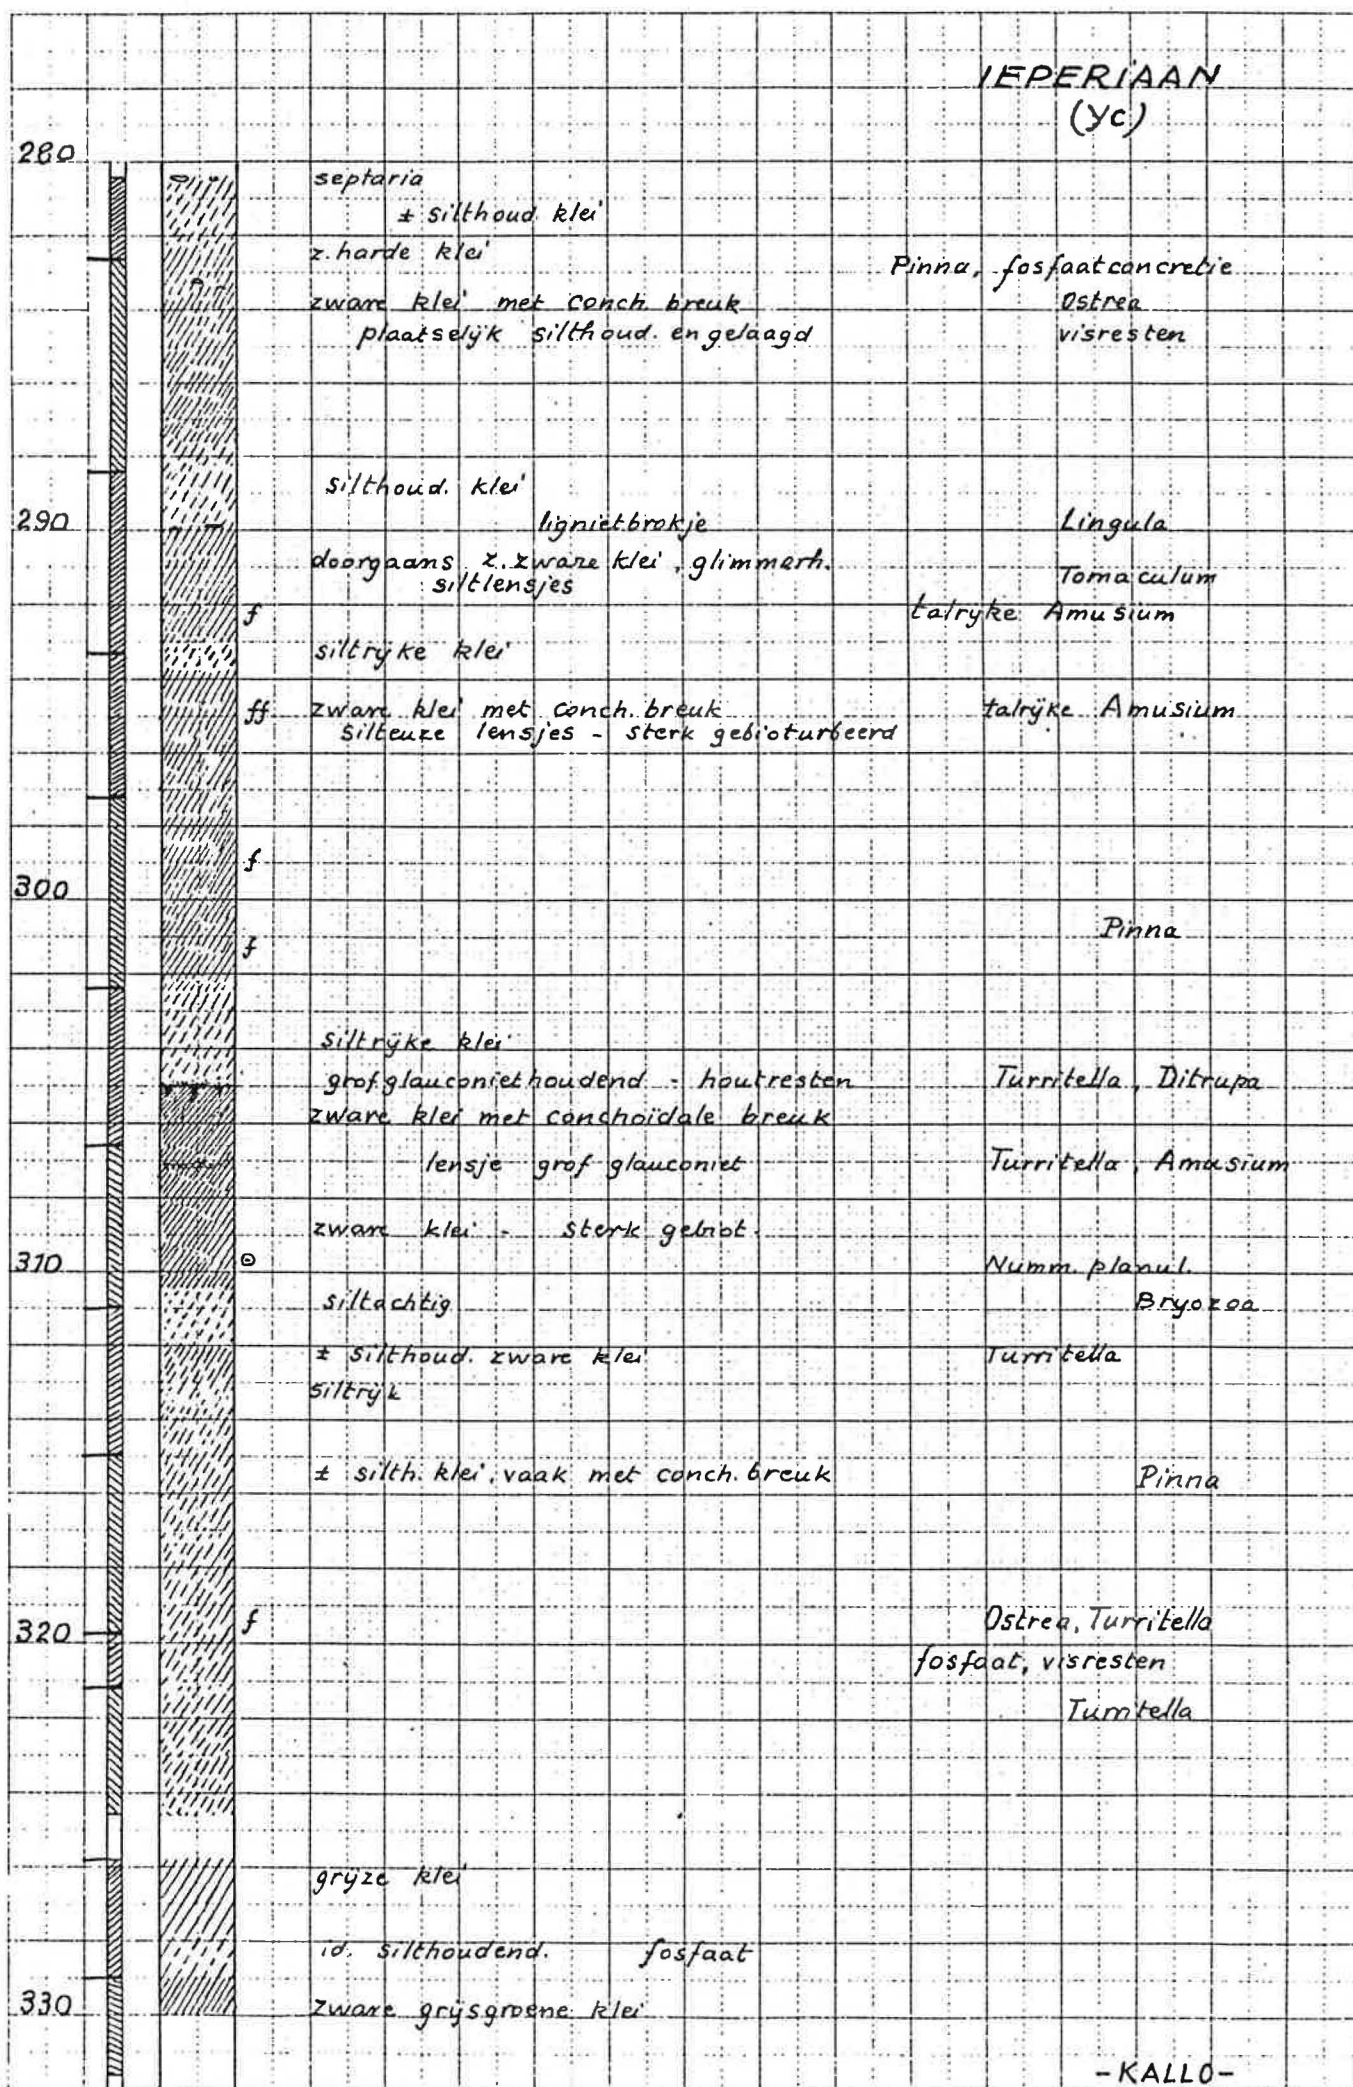 IEPERIAAN
(YC)
280
septaria
± silthoud. klei
z. harde klei
Pinna, fosfaatconcretie
zware klei met conch. breuk
Ostrea
plaatselijk silthoud. en gelaagd
visresten
silthoud. klei
290
lignietbrokje
Lingula
doorgaans z. zware klei, glimmerh.
siltlensjes
Tomaculum
f
talrijke Amusium
siltrijke klei
ff
zware klei met conch. breuk
talrijke Amusium
silteuze lensjes - sterk gebioturbeerd
f
300
f
Pinna
siltrijke klei
grof glauconiethoudend - houtresten
Turritella, Ditrupa
zware klei met conchoidale breuk
lensje grof glauconiet
Turritella, Amusium
zware klei - sterk gebiot.
310
Numm. planul.
siltachtig
Bryozoa
± silthoud. zware klei
Turritella
siltrijk
± silth. klei, vaak met conch. breuk
Pinna
320
f
Ostrea, Turritella
fosfaat, visresten
Turritella
grijze klei
id. silthoudend. fosfaat
330
zware grijsgroene klei
-KALLO-